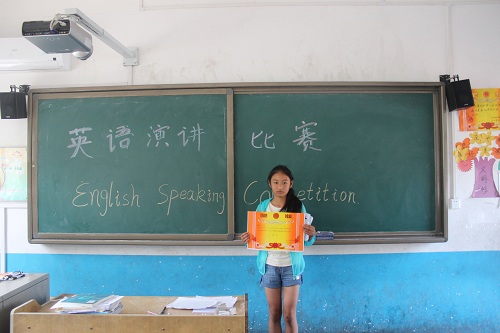 英语演讲 比赛
English Speaking Competition